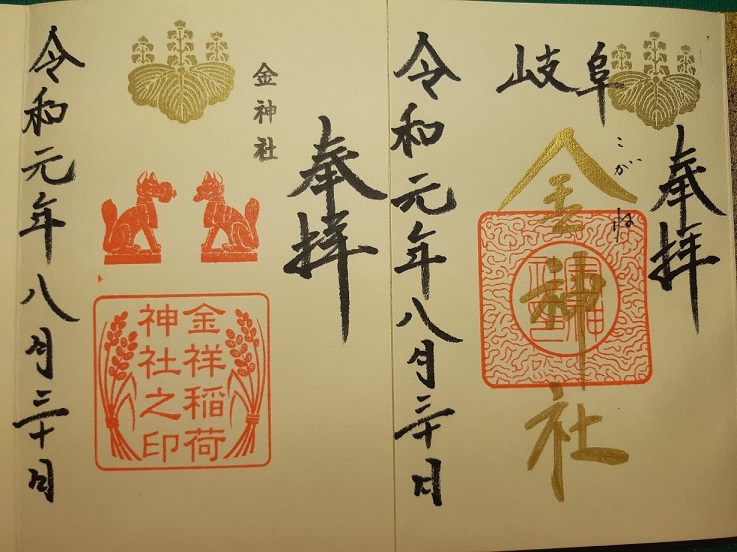 奉拝
岐阜
こがね
金神社
令和元年八月三十日
奉拝
金神社
金祥稲荷
神社之印
令和元年八月三十日